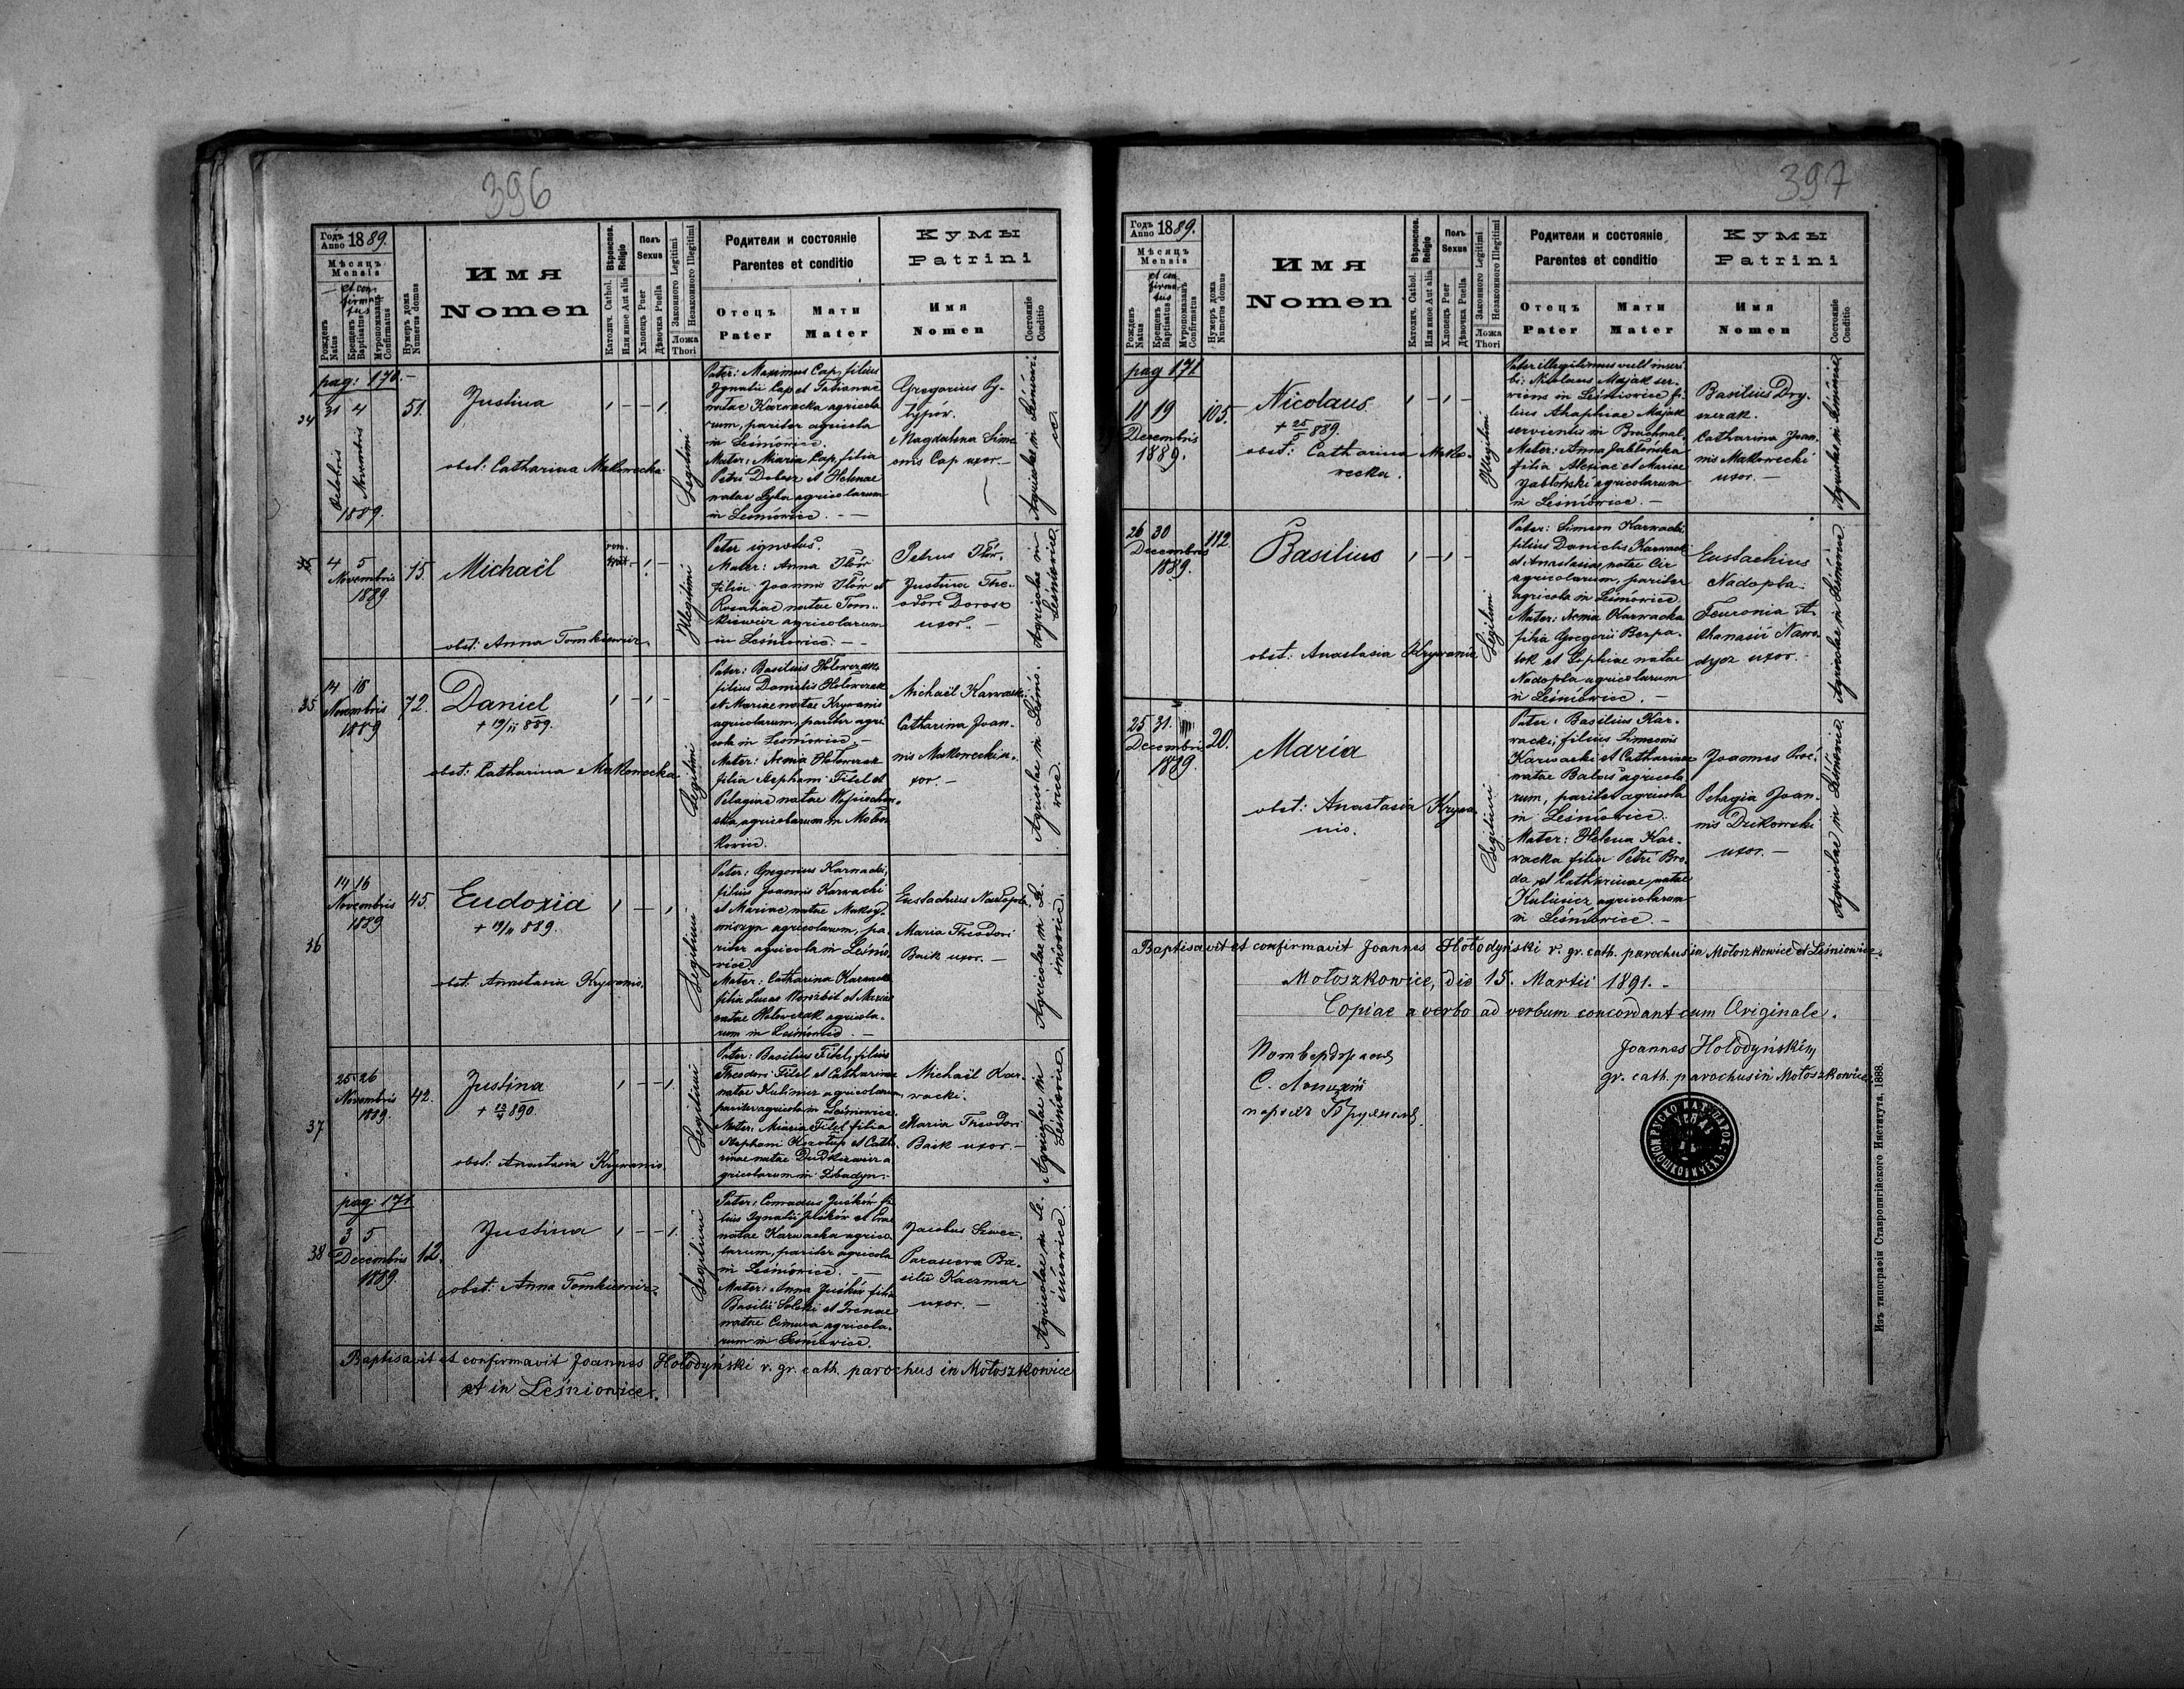 396
Годъ Anno 1889.
Мѣсяцъ
Mensis
et con-
firma-
tus
Рожденъ
Natus
Крещенъ
Baptisatus
Мѵропомазанъ
Confirmatus
Нумеръ дома
Numerus domus
Имя
Nomen
Вѣроиспов.
Religio
Католич. Cathol.
Или иное Aut alia
Полъ
Sexus
Хлопецъ Puer
Дѣвочка Puella
Законного Legitimi
Незаконного Illegitimi
Ложа
Thori
Родители и состояніе
Parentes et conditio
Отецъ
Pater
Мати
Mater
Кумы
Patrini
Имя
Nomen
Состояніе
Conditio
pag: 170.-
34
31 4
Octobris
Novembris
1889.
51.
Justina
obst: Catharina Makowecka
Legitimi
Pater: Maximus Cap, filius
Ignatii Cap et Tatianae
natae Karwacka agricola
rum, pariter agricola
in Leśniowice.
Mater: Maria Cap, filia
Petri Dobosz et Helenae
natae Zyla agricolarum
in Leśniowice. -
Gregorius
Magdalena Sime
onis Cap uxor. -
Agricolae in Leśniowi-
ce
4 5
Novembris
1889
15.
Michaël
rom.
obst: Anna Tomkiewicz
Illegitimi
Pater ignotus.
Mater: Anna
filia Joannis et
Rosaliae natae Tom-
kiewicz agricolarum
in Leśniowice. -
Petrus
Justina The-
odori Dorosz
uxor. -
Agricolae in
Leśniowice
35
14 18
Novembris
1889
72.
Daniel
+ 19/11 889.
obst: Catharina Makowecka
Legitimi
Pater: Basilius Hołowczak
filius Danielis Hołowczak
et Mariae natae Krywanis
agricolarum, pariter agri-
cola in Leśniowice. -
Mater: Xenia Hołowczak
filia Stephani Fitel et
Pelagiae natae
agricolarum in Mołosz
kowice.
Michaël Karwacki
Catharina Joan-
nis Makowecki u-
xor. -
Agricolae in Leśnio-
wice.
36
14 16
Novembris
1889
45.
Eudoxia
+ 19/11 889.
obst: Anastasia Krywanis.
Legitimi
Pater: Gregorius Karwacki,
filius Joannis Karwacki
et Mariae natae
agricolarum, pa-
riter agricola in Leśnio-
wice.
Mater: Catharina Karwacka
filia Lucae Worobit et Mariae
natae Hołowczak agricola-
rum in Leśniowice. -
Eustachius Nadopta
Maria Theodori
Baik uxor. -
Agricolae in Le-
śniowice.
37
25 26
Novembris
1889.
42.
Justina
+ 890.
obst: Anastasia Krywanis.
Legitimi
Pater: Basilius Fitel, filius
Theodori Fitel et Catharinae
natae Kulinicz agricolarum
pariter agricola in Leśniowice.
Mater: Maria Fitel filia
Stephani et Catha
rinae natae Dudkiewicz a
gricolarum in
Michaël Kar-
wacki.
Maria Theodori
Baik uxor. -
Agricolae in
Leśniowice.
pag: 171.
38
3 5
Decembris
1889.
12.
Justina
obst: Anna Tomkiewicz
Legitimi
Pater: Juśków fi-
lius Ignatii Juśków et
natae Karwacka agrico
larum, pariter agricola
in Leśniowice. -
Mater: Anna Juśków filia
Basilii et Irenae
natae agricola-
rum in Leśniowice.
Jacobus Szwec.
Parasceva Ba-
silii Kaczmar
uxor. -
Agricolae in Le-
śniowice.
Baptisavit et confirmavit Joannes Hołodyński r. gr. cath. parochus in Mołoszkowice
et in Leśniowice.
397
Годъ Anno 1889.
Мѣсяцъ
Mensis
et con
firma-
tus
Рожденъ
Natus
Крещенъ
Baptisatus
Мѵропомазанъ
Confirmatus
Нумеръ дома
Numerus domus
Имя
Nomen
Вѣроиспов.
Religio
Католич. Cathol.
Или иное Aut alia
Полъ
Sexus
Хлопецъ Puer
Дѣвочка Puella
Законного Legitimi
Незаконного Illegitimi
Ложа
Thori
Родители и состояніе
Parentes et conditio
Отецъ
Pater
Мати
Mater
Кумы
Patrini
Имя
Nomen
Состояніе
Conditio
pag 171
18 19
Decembris
1889.
105.
Nicolaus
+ 25/5 889.
obst: Catharina Mako-
wecka.
Illegitimi
Pater illegitimus vult inseri
bi: Nicolaus Majak ser-
viens in Leśniowice fi-
lius Ahaphiae Majak
servientis in Bruchnal.
Mater: Anna Jabłońska
filia Alexiae et Mariae
Jabłoński agricolarum
in Leśniowice. -
Basilius Dry-
Catharina Joan-
nis Makowecki
uxor. -
Agricolae in Leśniowice
26 30
Decembris
1889.
112.
Basilius
obst: Anastasia Krywanis
Legitimi
Pater: Simeon Karwacki
filius Danielis Karwacki
et Anastasiae natae Cir
agricolarum, pariter
agricola in Leśniowice
Mater: Xenia Karwacka
filia Gregorii Bezpa-
lok et Sophiae natae
Nadopta agricolarum
in Leśniowice. -
Eustachius
Nadopta.
Feuronia A-
thanasii Nawo-
dycz uxor. -
Agricolae in Leśniowice
25 31.
Decembris
1889.
20.
Maria
obst: Anastasia Krywa
nis.
Legitimi
Pater: Basilius Kar-
wacki, filius Simeonis
Karwacki et Catharinae
natae Baloś agricola
rum, pariter agricola
in Leśniowice.
Mater: Helena Kar-
wacka filia Petri Bro
da et Catharinae natae
Kulinicz agricolarum
in Leśniowice. -
Joannes
Pelagia Joan-
nis Dzikowski
uxor. -
Agricolae in Leśniowice.
Baptisavit et confirmavit Joannes Hołodyński r. gr. cath. parochus in Mołoszkowice et Leśniowice.
Mołoszkowice, die 15. Martii 1891. -
Copiae a verbo ad verbum concordant cum Originale.
Joannes Hołodyński
gr. cath. parochus in Mołoszkowice.
Изъ типографіи Ставропигійского Института, 1888.